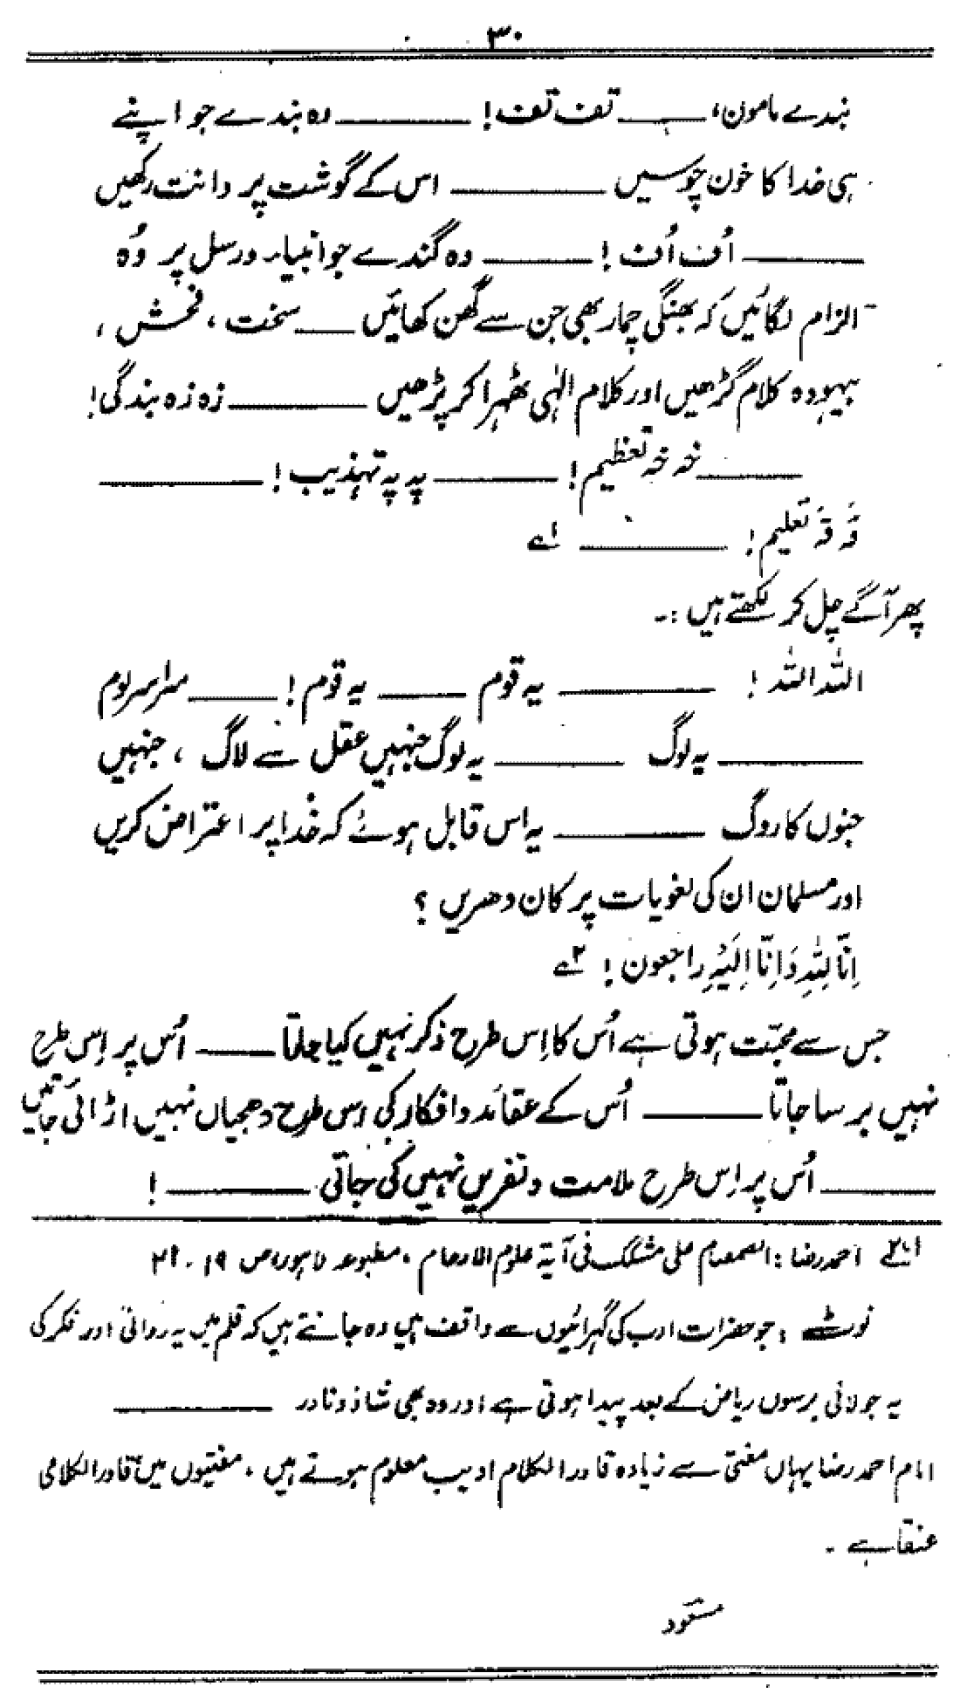 ۳۰
بندے مامون، ____ تف تف! ____ وہ بندے جو اپنے
ہی خدا کا خون چوسیں ____ اس کے گوشت پر دانت رکھیں
____ اُف اُف! ____ وہ گندے جو انبیاء ورسل پر وُہ
الزام لگائیں کہ بھنگی چمار بھی جن سے گھن کھائیں ____ سخت، فحش،
بیہودہ کلام گڑھیں اور کلام الٰہی ٹھہرا کر پڑھیں ____ زہ زہ بندگی!
____ خہ خہ تعظیم! ____ پہ پہ تہذیب! ____
قَہ قَہ تعلیم! ____ ۱ے
پھر آگے چل کر لکھتے ہیں :۔
اللہ اللہ! ____ یہ قوم ____ یہ قوم! ____ سراسر لوم
____ یہ لوگ ____ یہ لوگ جنہیں عقل سے لاگ ، جنہیں
جنوں کا روگ ____ یہ اس قابل ہوئے کہ خُدا پر اعتراض کریں
اور مسلمان ان کی لغویات پر کان دھریں ؟
اِنَّا لِلّٰہِ وَاِنَّا اِلَیْہِ راجعون! ۲ے
جس سے محبّت ہوتی ہے اُس کا اِس طرح ذکر نہیں کیا جاتا ____ اُس پر اِس طرح
نہیں برسا جاتا ____ اُس کے عقائد و افکار کی اس طرح دھجیاں نہیں اڑائی جاتیں
____ اُس پر اِس طرح ملامت و نفریں نہیں کی جاتی ____ !
۱،۲ے احمد رضا : الصمصام علی مشکک فی آیۃ علوم الارحام ، مطبوعہ لاہور، ص ۱۹ ، ۲۱
نوٹ : جو حضرات ادب کی گہرائیوں سے واقف ہیں وہ جانتے ہیں کہ قلم میں یہ روانی اور فکر کی
یہ جولانی برسوں ریاض کے بعد پیدا ہوتی ہے اور وہ بھی شاذ و نادر ____
امام احمد رضا یہاں مفتی سے زیادہ قادر الکلام ادیب معلوم ہوتے ہیں ۔ مفتیوں میں قادر الکلامی
عنقا ہے ۔
مسعود